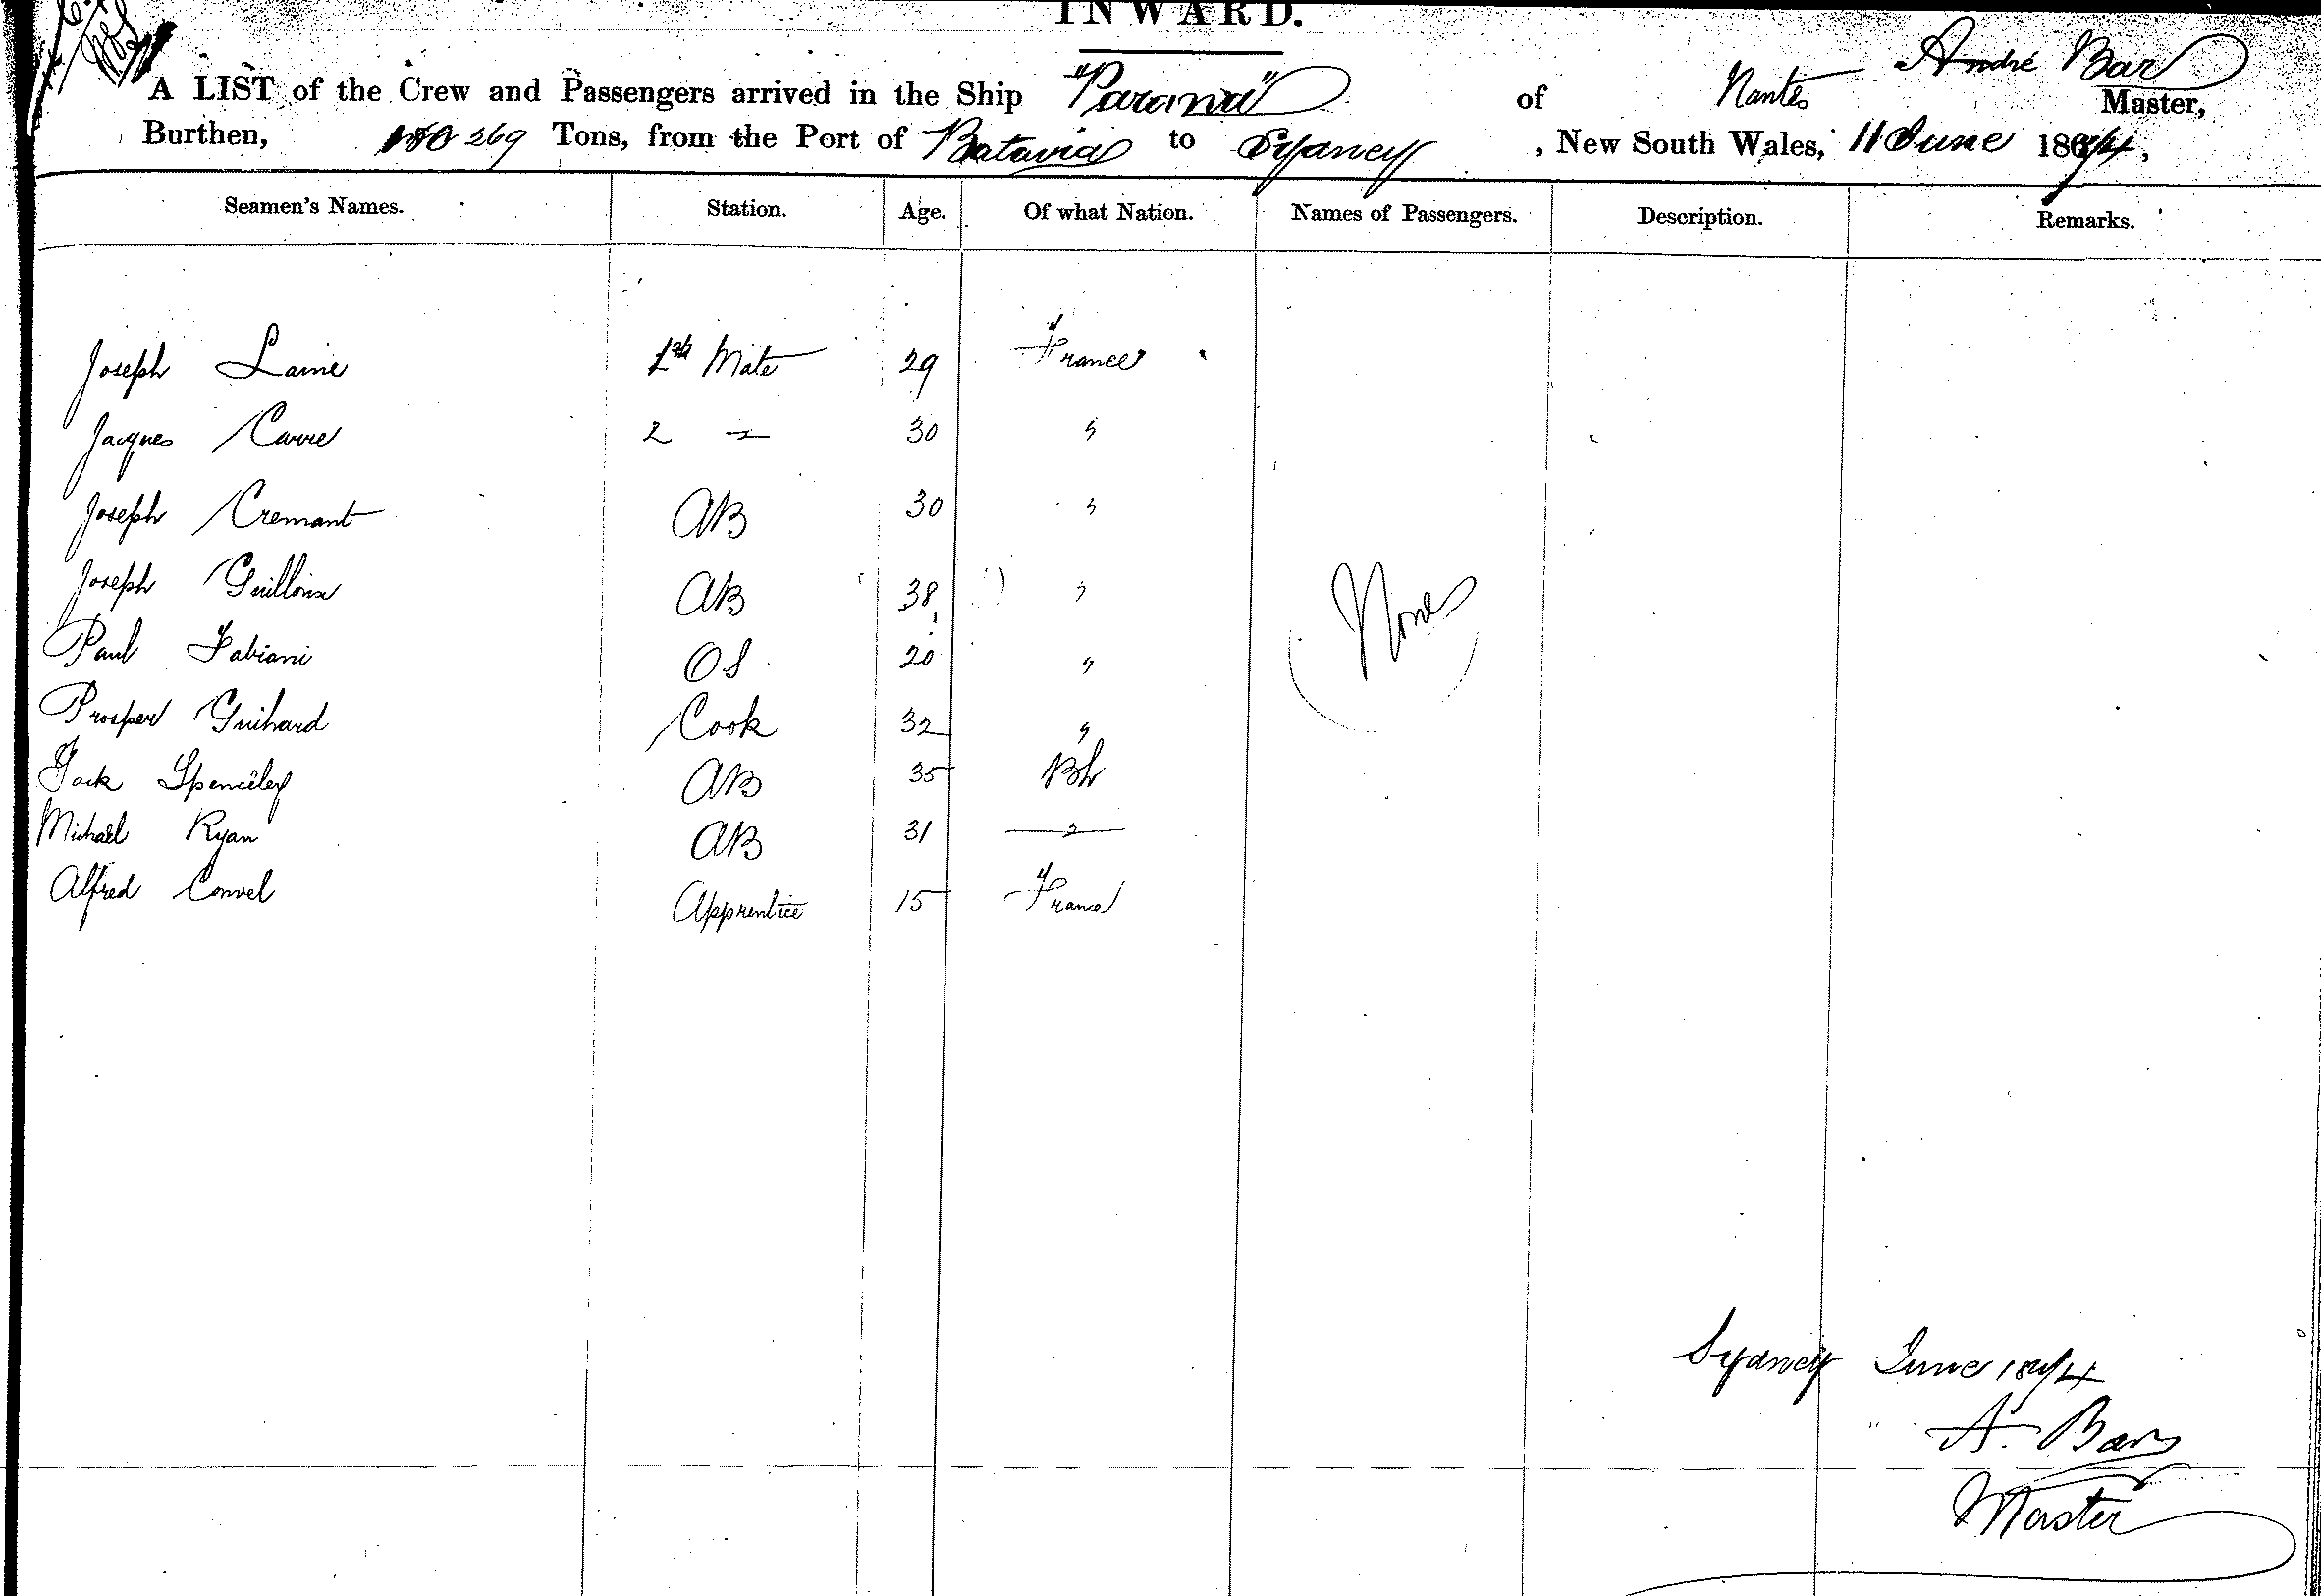 INWARD.
A LIST of the Crew and Passengers arrived in the Ship "Parana" of Nantes André Bar Master,
Burthen, 269 Tons, from the Port of Batavia to Sydney , New South Wales, 11 June 1874,
Seamen's Names. Station. Age. Of what Nation. Names of Passengers. Description. Remarks.
Joseph Laine Mate 29 France
Jacques 2 30 "
Joseph Cremant AB 30 "
Joseph AB 38 "
Paul Fabiani OS 20 "
None
Prosper Guihard Cook 32 "
Jack Spenceley AB 35 Bh
Michael Ryan AB 31 "
Alfred Convel Apprentice 15 France
Sydney June 1874
A. Bar
Master